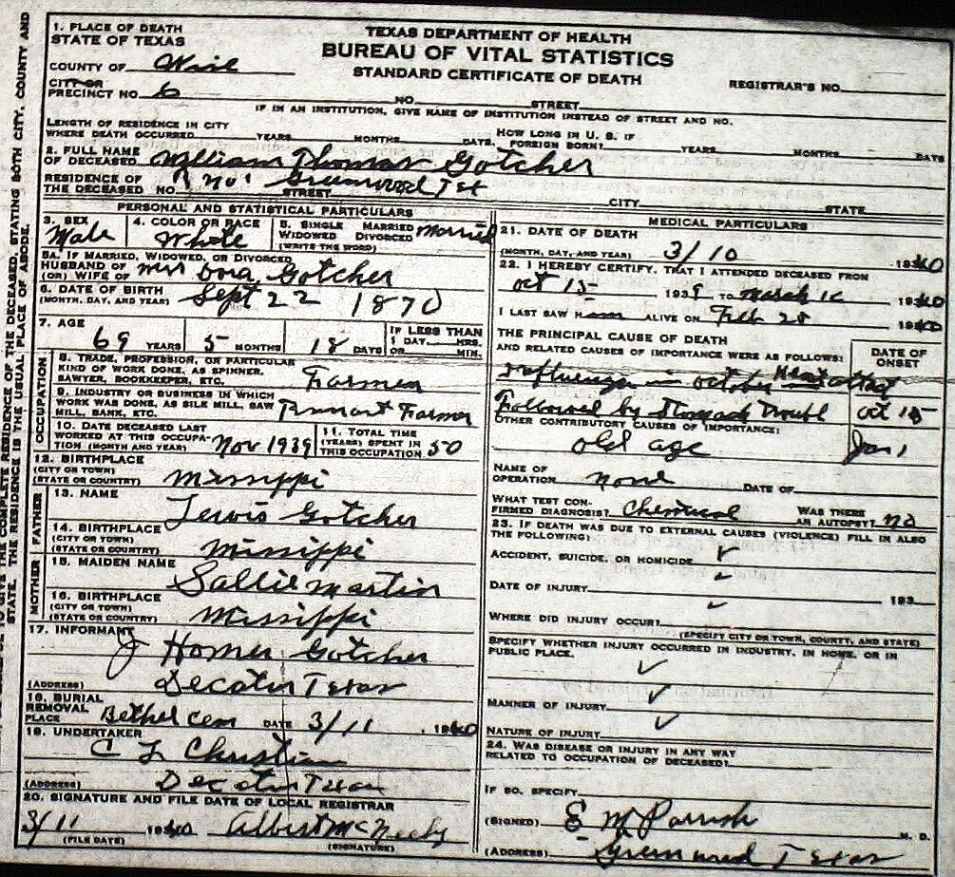 TEXAS DEPARTMENT OF HEALTH
BUREAU OF VITAL STATISTICS
STANDARD CERTIFICATE OF DEATH
1. PLACE OF DEATH
STATE OF TEXAS
COUNTY OF Wise
REGISTRAR'S NO.
CITY OR
PRECINCT NO. 6 NO. STREET
IF IN AN INSTITUTION, GIVE NAME OF INSTITUTION INSTEAD OF STREET AND NO.
LENGTH OF RESIDENCE IN CITY
WHERE DEATH OCCURRED YEARS MONTHS DAYS. HOW LONG IN U. S. IF FOREIGN BORN? YEARS MONTHS DAYS
2. FULL NAME
OF DECEASED William Thomas Gotcher
RESIDENCE OF
THE DECEASED NO. R no 1 STREET Greenwood Tex CITY STATE
PERSONAL AND STATISTICAL PARTICULARS
3. SEX Male
4. COLOR OR RACE White
5. SINGLE MARRIED WIDOWED DIVORCED (WRITE THE WORD) Married
5A. IF MARRIED, WIDOWED, OR DIVORCED
HUSBAND OF
(OR) WIFE OF Mrs Dora Gotcher
6. DATE OF BIRTH
(MONTH, DAY, AND YEAR) Sept 22 1870
7. AGE 69 YEARS 5 MONTHS 18 DAYS IF LESS THAN 1 DAY HRS. OR MIN.
OCCUPATION
8. TRADE, PROFESSION, OR PARTICULAR
KIND OF WORK DONE, AS SPINNER,
SAWYER, BOOKKEEPER, ETC. Farmer
9. INDUSTRY OR BUSINESS IN WHICH
WORK WAS DONE, AS SILK MILL, SAW
MILL, BANK, ETC. Farmer
10. DATE DECEASED LAST
WORKED AT THIS OCCUPA-
TION (MONTH AND YEAR) Nov 1939
11. TOTAL TIME
(YEARS) SPENT IN
THIS OCCUPATION 50
12. BIRTHPLACE
(CITY OR TOWN)
(STATE OR COUNTRY) Missippi
FATHER
13. NAME Lewis Gotcher
14. BIRTHPLACE
(CITY OR TOWN)
(STATE OR COUNTRY) Missippi
MOTHER
15. MAIDEN NAME Sallie Martin
16. BIRTHPLACE
(CITY OR TOWN)
(STATE OR COUNTRY) Missippi
17. INFORMANT J Homer Gotcher
(ADDRESS) Decatur Texas
18. BURIAL
REMOVAL
PLACE Bethel cem DATE 3/11, 1940
19. UNDERTAKER C L Christian
(ADDRESS) Decatur Texas
20. SIGNATURE AND FILE DATE OF LOCAL REGISTRAR
3/11 1940 Albert McNeely
(FILE DATE) (SIGNATURE)
MEDICAL PARTICULARS
21. DATE OF DEATH
(MONTH, DAY, AND YEAR) 3/10 1940
22. I HEREBY CERTIFY, THAT I ATTENDED DECEASED FROM
Oct 15 1939 TO March 10 1940
I LAST SAW H im ALIVE ON Feb 28 1940
THE PRINCIPAL CAUSE OF DEATH
AND RELATED CAUSES OF IMPORTANCE WERE AS FOLLOWS:
DATE OF
ONSET
Influenza in october Heart attact
Followed by Stomach Troubl Oct 15
OTHER CONTRIBUTORY CAUSES OF IMPORTANCE:
old age Jan 1
NAME OF
OPERATION none DATE OF
WHAT TEST CON-
FIRMED DIAGNOSIS? WAS THERE
AN AUTOPSY? no
23. IF DEATH WAS DUE TO EXTERNAL CAUSES (VIOLENCE) FILL IN ALSO
THE FOLLOWING:
ACCIDENT, SUICIDE, OR HOMICIDE ✓
DATE OF INJURY ✓ 193
WHERE DID INJURY OCCUR? ✓
(SPECIFY CITY OR TOWN, COUNTY, AND STATE)
SPECIFY WHETHER INJURY OCCURRED IN INDUSTRY, IN HOME, OR IN
PUBLIC PLACE. ✓
MANNER OF INJURY ✓
NATURE OF INJURY ✓
24. WAS DISEASE OR INJURY IN ANY WAY
RELATED TO OCCUPATION OF DECEASED?
IF SO, SPECIFY
(SIGNED) E M Parrish M. D.
(ADDRESS) Greenwood Texas
STATE. THE RESIDENCE IS THE USUAL PLACE OF ABODE.
THE COMPLETE RESIDENCE OF THE DECEASED, STATING BOTH CITY, COUNTY AND